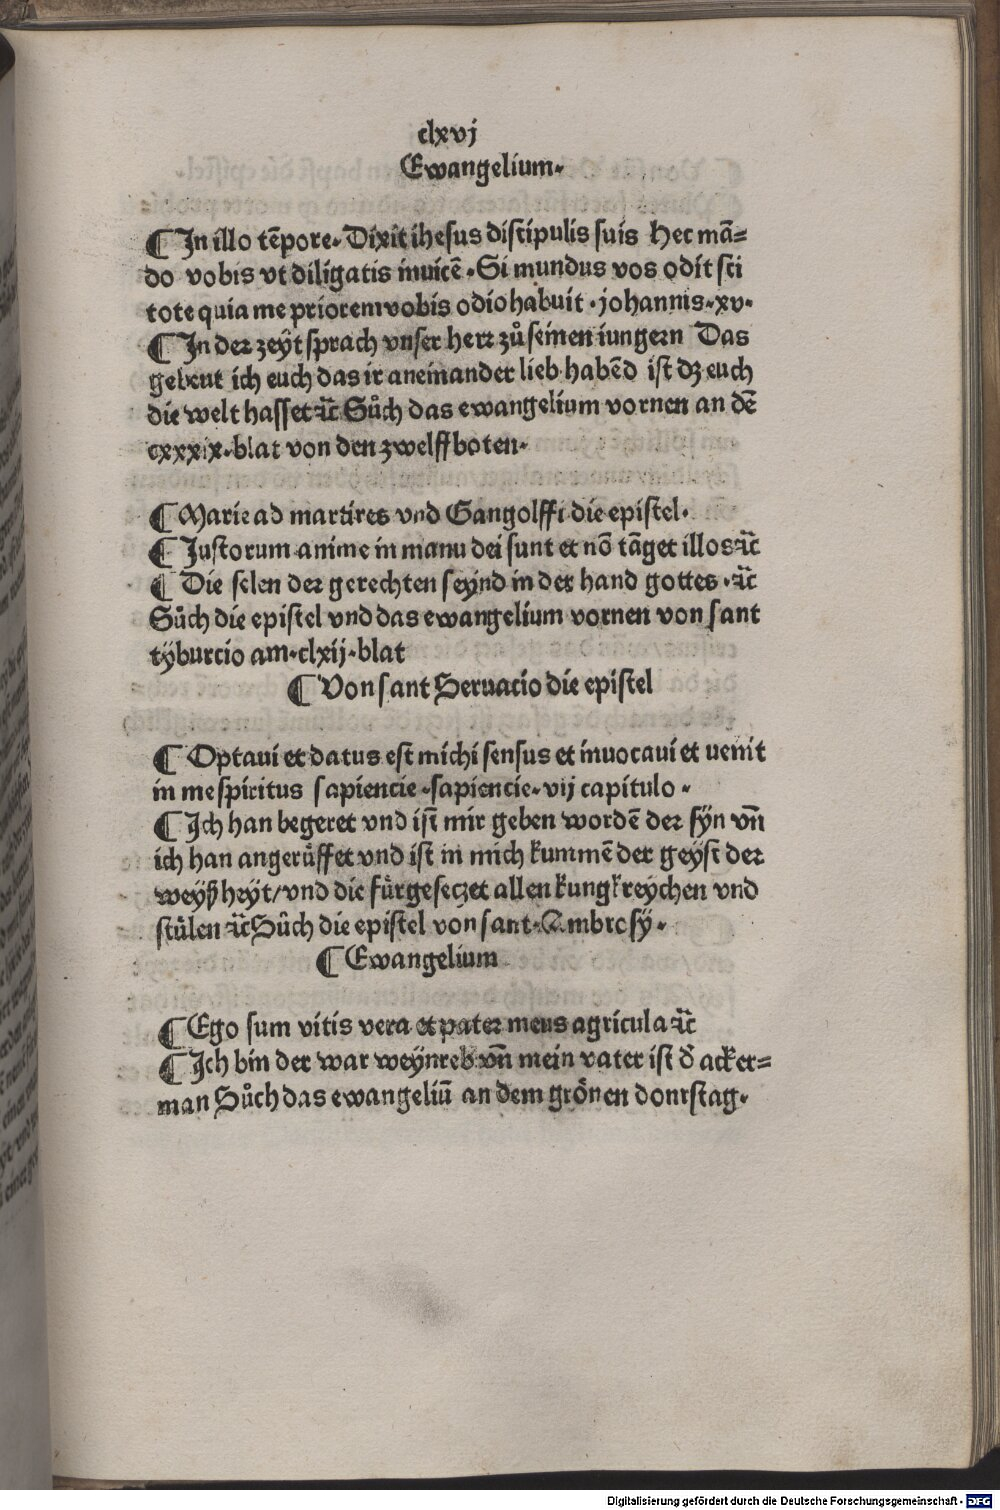 clxvj
Ewangelium.
¶ In illo tēpore. Dixit ihesus discipulis suis Hec mā=
do vobis vt diligatis inuicē. Si mundus vos odit sci
tote quia me priorem vobis odio habuit. johannis. xv.
¶ In der zeÿt sprach vnser herr zů seinen iungern Das
gebeut ich euch das ir aneinander lieb habēd ist dz euch
die welt hasset ꝛc̄ Sůch das ewangelium vornen an dē
cxxxix. blat von den zwelffboten.
¶ Marie ad martires vnd Gangolffi die epistel.
¶ Justorum anime in manu dei sunt et nō tāget illos ꝛc̄
¶ Die selen der gerechten seÿnd in der hand gottes. ꝛc̄
Sůch die epistel vnd das ewangelium vornen von sant
tÿburcio am. clxij. blat
¶ Von sant Seruacio die epistel
¶ Optaui et datus est michi sensus et inuocaui et uenit
in me spiritus sapiencie. sapiencie. vij capitulo.
¶ Ich han begeret vnd ist mir geben wordē der sÿn vn̄
ich han angerůffet vnd ist in mich kummē der geÿst der
weÿßheÿt/ vnd die fürgeseczet allen kungkreychen vnd
stůlen ꝛc̄ Sůch die epistel von sant. Ambrosÿ.
¶ Ewangelium
¶ Ego sum vitis vera et pater meus agricula ꝛc̄
¶ Ich bin der war weÿnreb vn̄ mein vater ist d̄ acker=
man Sůch das ewangeliū an dem grönen donrstag.
Digitalisierung gefördert durch die Deutsche Forschungsgemeinschaft - DFG